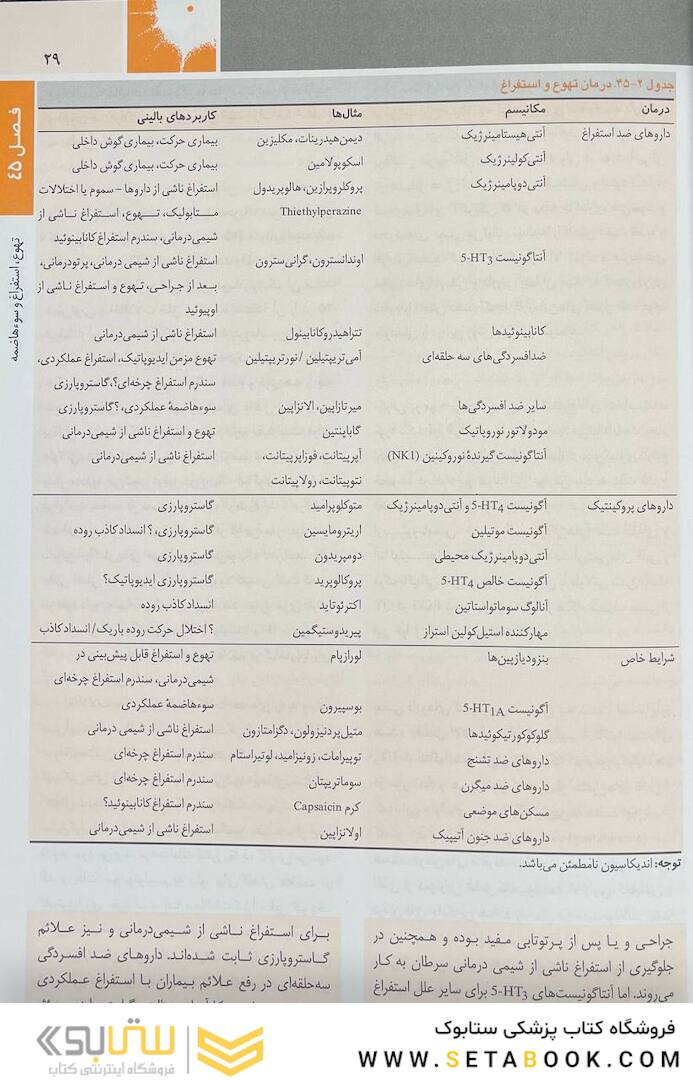 ۲۹
فصل ۴۵
تهوع، استفراغ و سوءهاضمه
جدول ۲-۴۵. درمان تهوع و استفراغ
درمان مکانیسم مثال‌ها کاربردهای بالینی
داروهای ضد استفراغ آنتی‌هیستامینرژیک دیمن‌هیدرینات، مکلیزین بیماری حرکت، بیماری گوش داخلی
آنتی‌کولینرژیک اسکوپولامین بیماری حرکت، بیماری گوش داخلی
آنتی‌دوپامینرژیک پروکلروپرازین، هالوپریدول استفراغ ناشی از داروها – سموم یا اختلالات
Thiethylperazine متابولیک، تهوع، استفراغ ناشی از
شیمی‌درمانی، سندرم استفراغ کانابینوئید
آنتاگونیست 5-HT3 اوندانسترون، گرانی‌سترون استفراغ ناشی از شیمی درمانی، پرتودرمانی،
بعد از جراحی، تهوع و استفراغ ناشی از
اوپیوئید
کانابینوئیدها تتراهیدروکانابینول استفراغ ناشی از شیمی‌درمانی
ضدافسردگی‌های سه حلقه‌ای آمی‌تریپتیلین / نورتریپتیلین تهوع مزمن ایدیوپاتیک، استفراغ عملکردی،
سندرم استفراغ چرخه‌ای؟، گاستروپارزی
سایر ضد افسردگی‌ها میرتازاپین، الانزاپین سوءهاضمهٔ عملکردی، ؟گاستروپارزی
مودولاتور نوروپاتیک گاباپنتین تهوع و استفراغ ناشی از شیمی‌درمانی
آنتاگونیست گیرندهٔ نوروکینین (NK1) آپرپیتانت، فوزاپرپیتانت، استفراغ ناشی از شیمی‌درمانی
نتوپیتانت، رولاپیتانت
داروهای پروکینتیک آگونیست 5-HT4 و آنتی‌دوپامینرژیک متوکلوپرامید گاستروپارزی
آگونیست موتیلین اریترومایسین گاستروپارزی، ؟ انسداد کاذب روده
آنتی‌دوپامینرژیک محیطی دومپریدون گاستروپارزی
آگونیست خالص 5-HT4 پروکالوپرید گاستروپارزی ایدیوپاتیک؟
آنالوگ سوماتواستاتین اکترئوتاید انسداد کاذب روده
مهارکننده استیل‌کولین استراز پیریدوستیگمین ؟ اختلال حرکت روده باریک/ انسداد کاذب
شرایط خاص بنزودیازپین‌ها لورازپام تهوع و استفراغ قابل پیش‌بینی در
شیمی‌درمانی، سندرم استفراغ چرخه‌ای
آگونیست 5-HT1A بوسپیرون سوءهاضمهٔ عملکردی
گلوکوکورتیکوئیدها متیل‌پردنیزولون، دگزامتازون استفراغ ناشی از شیمی درمانی
داروهای ضد تشنج توپیرامات، زونیزامید، لوتیراستام سندرم استفراغ چرخه‌ای
داروهای ضد میگرن سوماتریپتان سندرم استفراغ چرخه‌ای
مسکن‌های موضعی کرم Capsaicin سندرم استفراغ کانابینوئید؟
داروهای ضد جنون آتیپیک اولانزاپین استفراغ ناشی از شیمی‌درمانی
توجه: اندیکاسیون نامطمئن می‌باشد.
جراحی و یا پس از پرتوتابی مفید بوده و همچنین در
جلوگیری از استفراغ ناشی از شیمی درمانی سرطان به کار
می‌روند. اما آنتاگونیست‌های 5-HT3 برای سایر علل استفراغ
برای استفراغ ناشی از شیمی‌درمانی و نیز علائم
گاستروپارزی ثابت شده‌اند. داروهای ضد افسردگی
سه‌حلقه‌ای در رفع علائم بیماران با استفراغ عملکردی
فروشگاه کتاب پزشکی ستابوک
WWW.SETABOOK.COM
ستابوک
فروشگاه اینترنتی کتاب